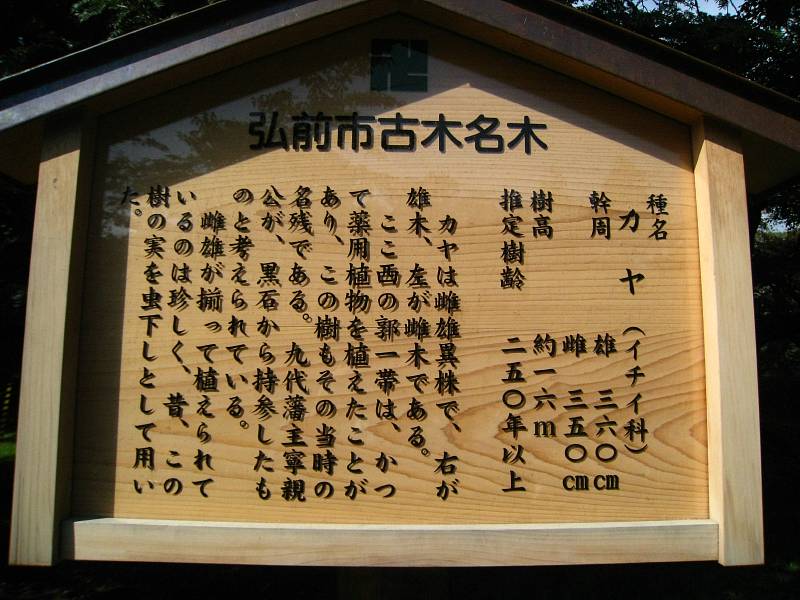 弘前市古木名木
種名 カヤ (イチイ科)
幹周 雄 三六〇cm
雌 三五〇cm
樹高 約一六m
推定樹齢 二五〇年以上
カヤは雌雄異株で、右が
雄木、左が雌木である。
ここ西の郭一帯は、かつ
て薬用植物を植えたことが
あり、この樹もその当時の
名残である。九代藩主寧親
公が、黒石から持参したも
のと考えられている。
雌雄が揃って植えられて
いるのは珍しく、昔、この
樹の実を虫下しとして用い
た。